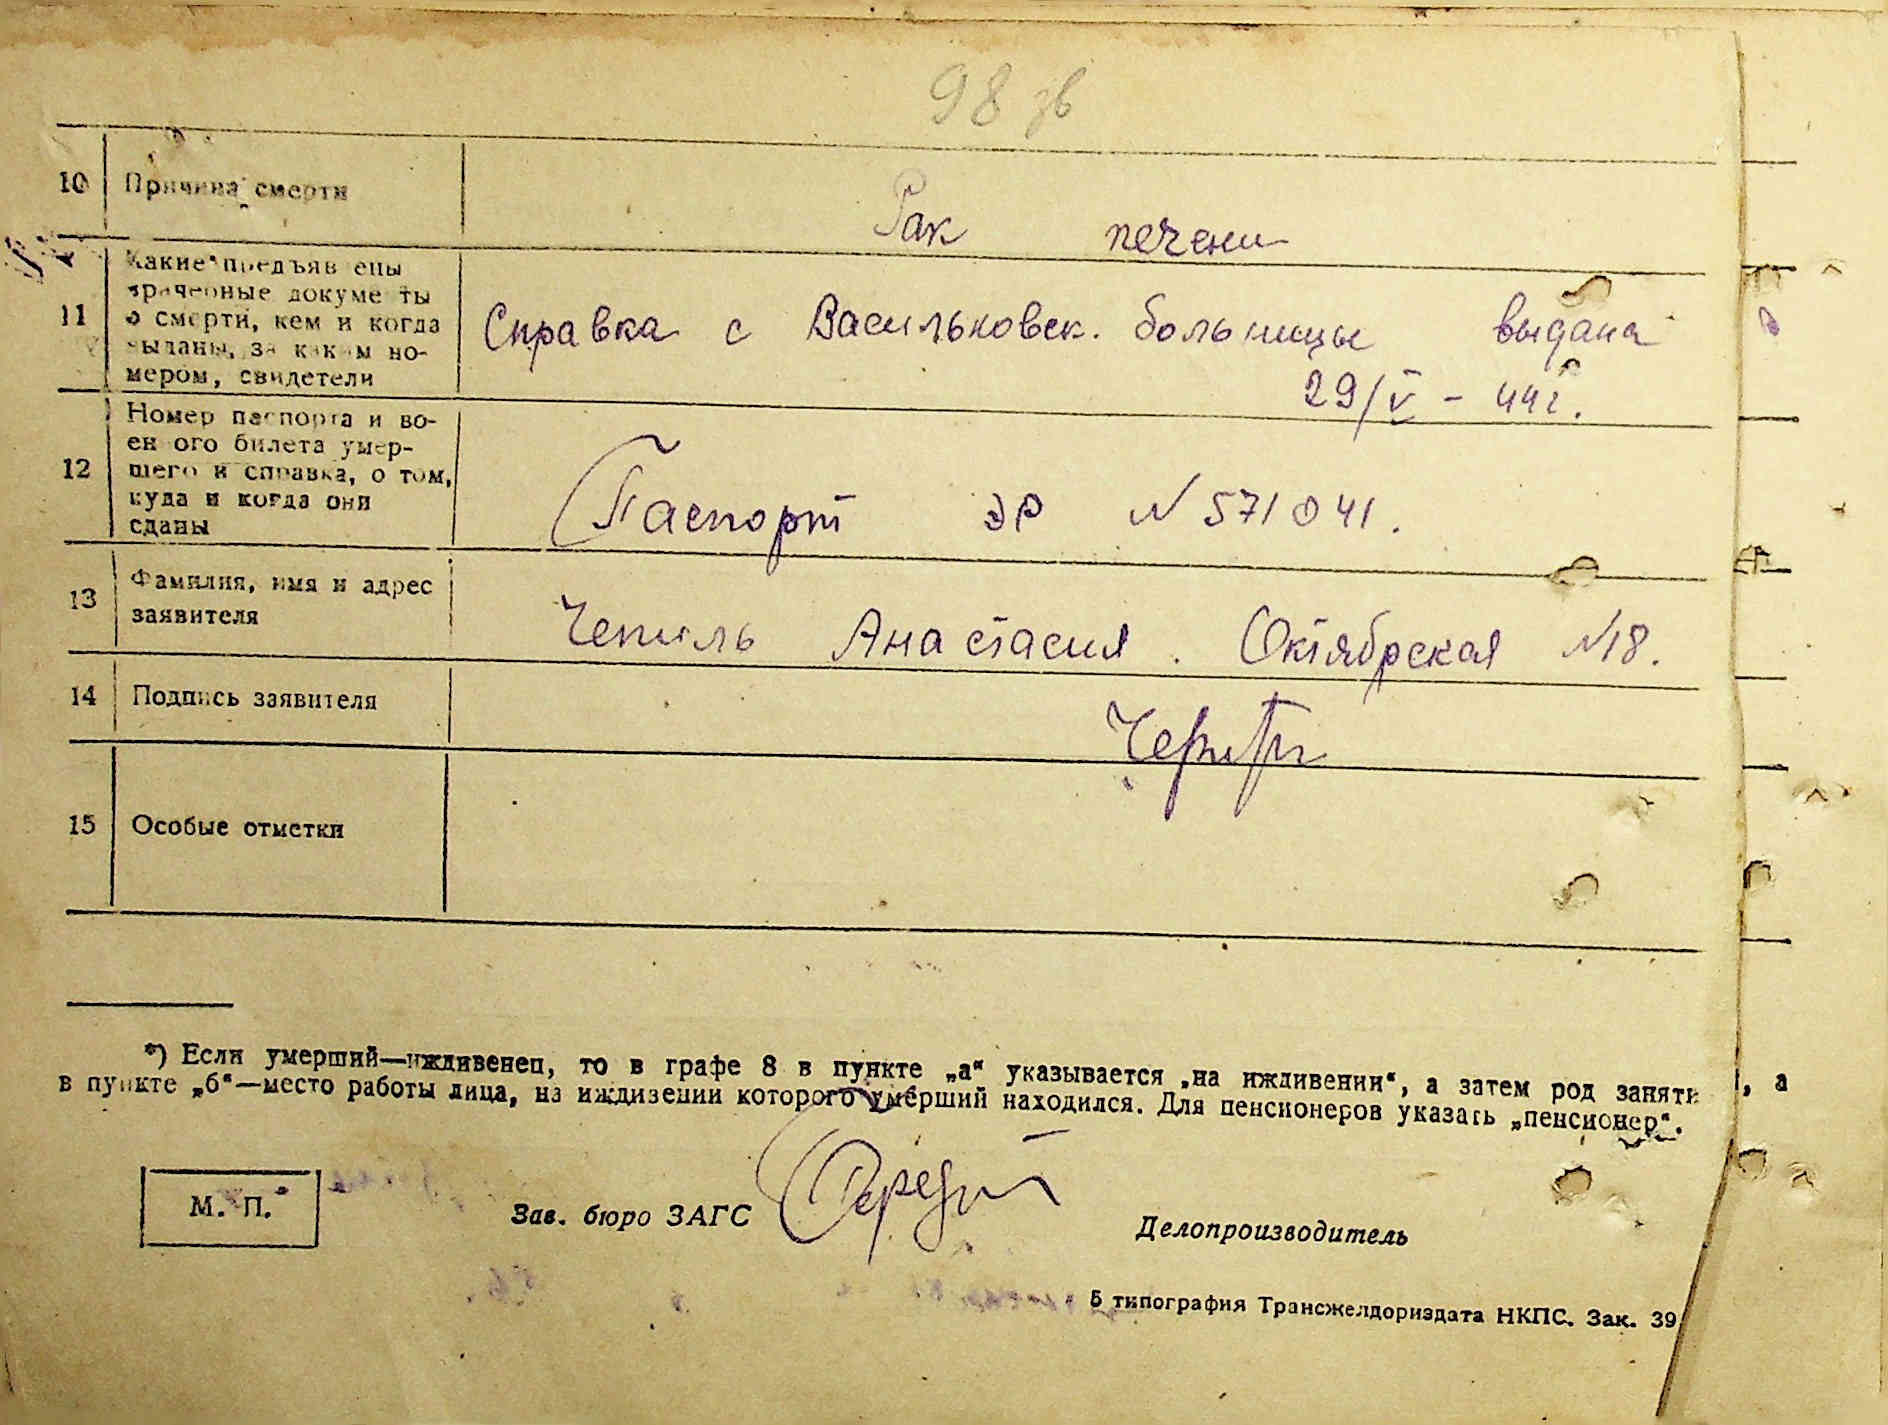 98 зв
10 Причина смерти
Рак печени
11 Какие предъявлены
врачебные документы
о смерти, кем и когда
выданы, за каким но-
мером, свидетели
Справка с Васильковск. больницы выдана
29/V - 44г.
12 Номер паспорта и во-
енного билета умер-
шего и справка, о том,
куда и когда они
сданы
Паспорт ЭР N 571041.
13 Фамилия, имя и адрес
заявителя
Чепиль Анастасия. Октябрская N18.
14 Подпись заявителя
15 Особые отметки
*) Если умерший—иждивенец, то в графе 8 в пункте „а“ указывается „на иждивении“, а затем род заняти , а
в пункте „б“—место работы лица, на иждивении которого умерший находился. Для пенсионеров указать „пенсионер“.
М. П.
Зав. бюро ЗАГС
Делопроизводитель
5 типография Трансжелдориздата НКПС. Зак. 39